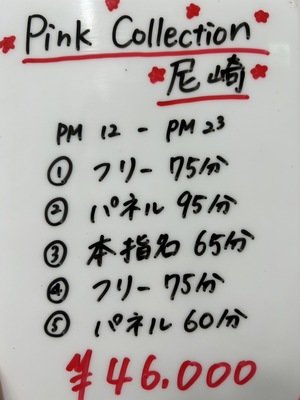 Pink Collection
尼崎
PM 12 - PM 23
① フリー 75分
② パネル 95分
③ 本指名 65分
④ フリー 75分
⑤ パネル 60分
¥46.000